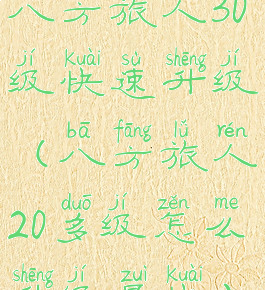 八方旅人30
jí kuài sù shēng jí
级快速升级
bā fāng lǚ rén
(八方旅人
duō jí zěn me
20多级怎么
shēng jí zuì kuài